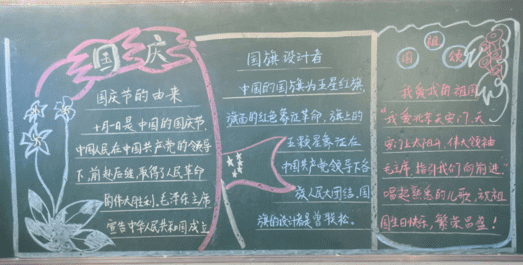 国庆
国庆节的由来
十月一日是中国的国庆节
中国人民在中国共产党的领导
下,前赴后继,取得了人民革命
的伟大胜利,毛泽东主席
宣告中华人民共和国成立
国旗设计者
中国的国旗为五星红旗,
旗面的红色象征革命,旗上的
五颗星象征在
中国共产党领导下各
族人民大团结,国
旗的设计者是曾联松.
祖国颂
我爱我的祖国
"我爱北京天安门,天
安门上太阳升,伟大领袖
毛主席,指引我们向前进."
唱起熟悉的儿歌,祝祖
国生日快乐,繁荣昌盛!